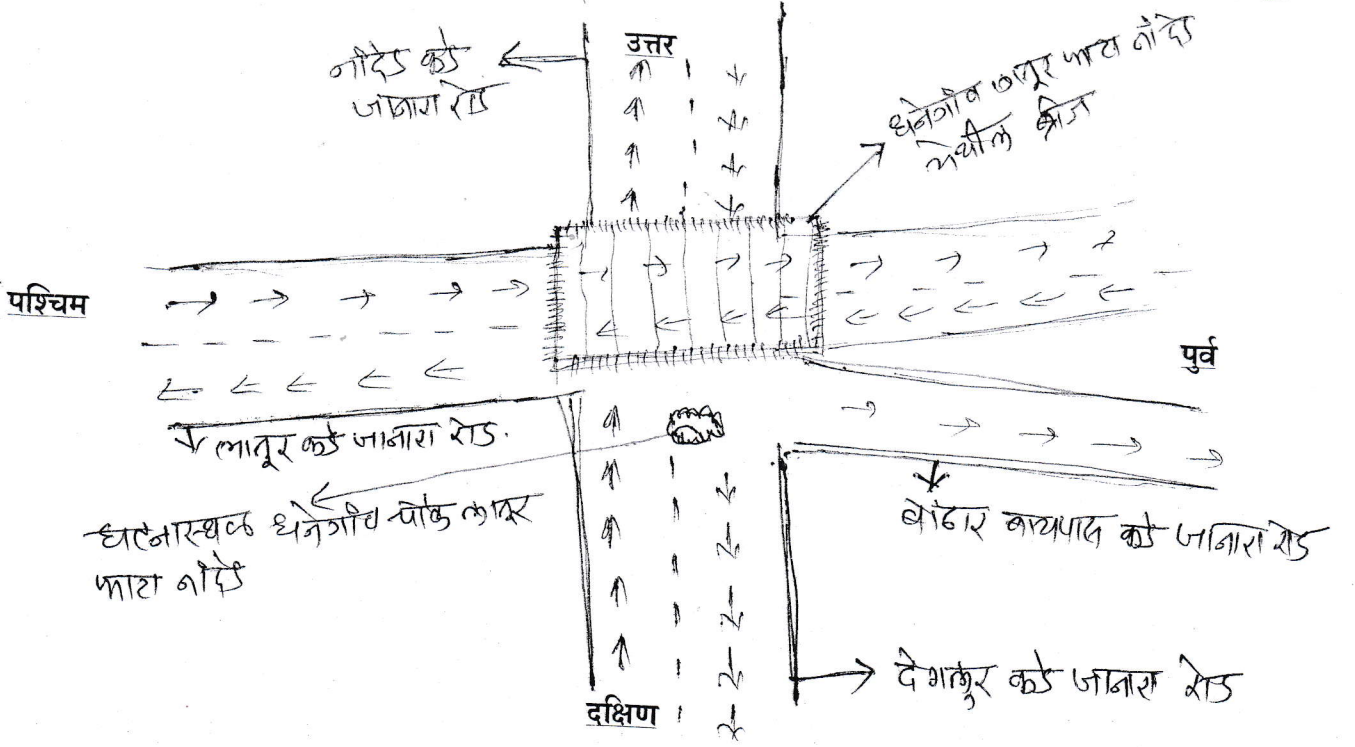 उत्तर
नांदेड कडे
जाणारा रोड
धनेगाव लातूर फाटा नांदेड
येथील ब्रीज
पश्चिम
पुर्व
लातूर कडे जाणारा रोड.
घटनास्थळ धनेगाव चौक लातूर
फाटा नांदेड
बोंढार बायपास कडे जाणारा रोड
देगलूर कडे जाणारा रोड
दक्षिण